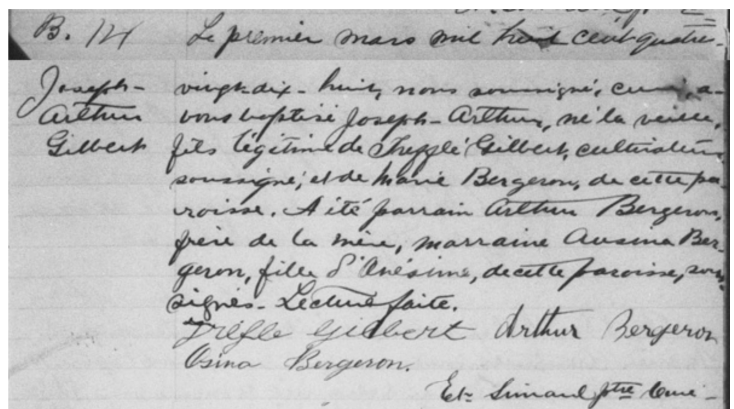 B. 14 Le premier mars mil huit cent quatre-
Joseph- vingt-dix-huit, nous soussigné, curé, a-
Arthur vons baptisé Joseph-Arthur, né la veille,
Gilbert fils légitime de Trefflé Gilbert, cultivateur
soussigné, et de Marie Bergeron, de cette pa-
roisse. A été parrain Arthur Bergeron,
frère de la mère, marraine Ausina Ber-
geron, fille d'Onésime, de cette paroisse, sous-
signés. Lecture faite.
Trefle Gilbert Arthur Bergeron
Osina Bergeron.
Et. Simard ptre Curé